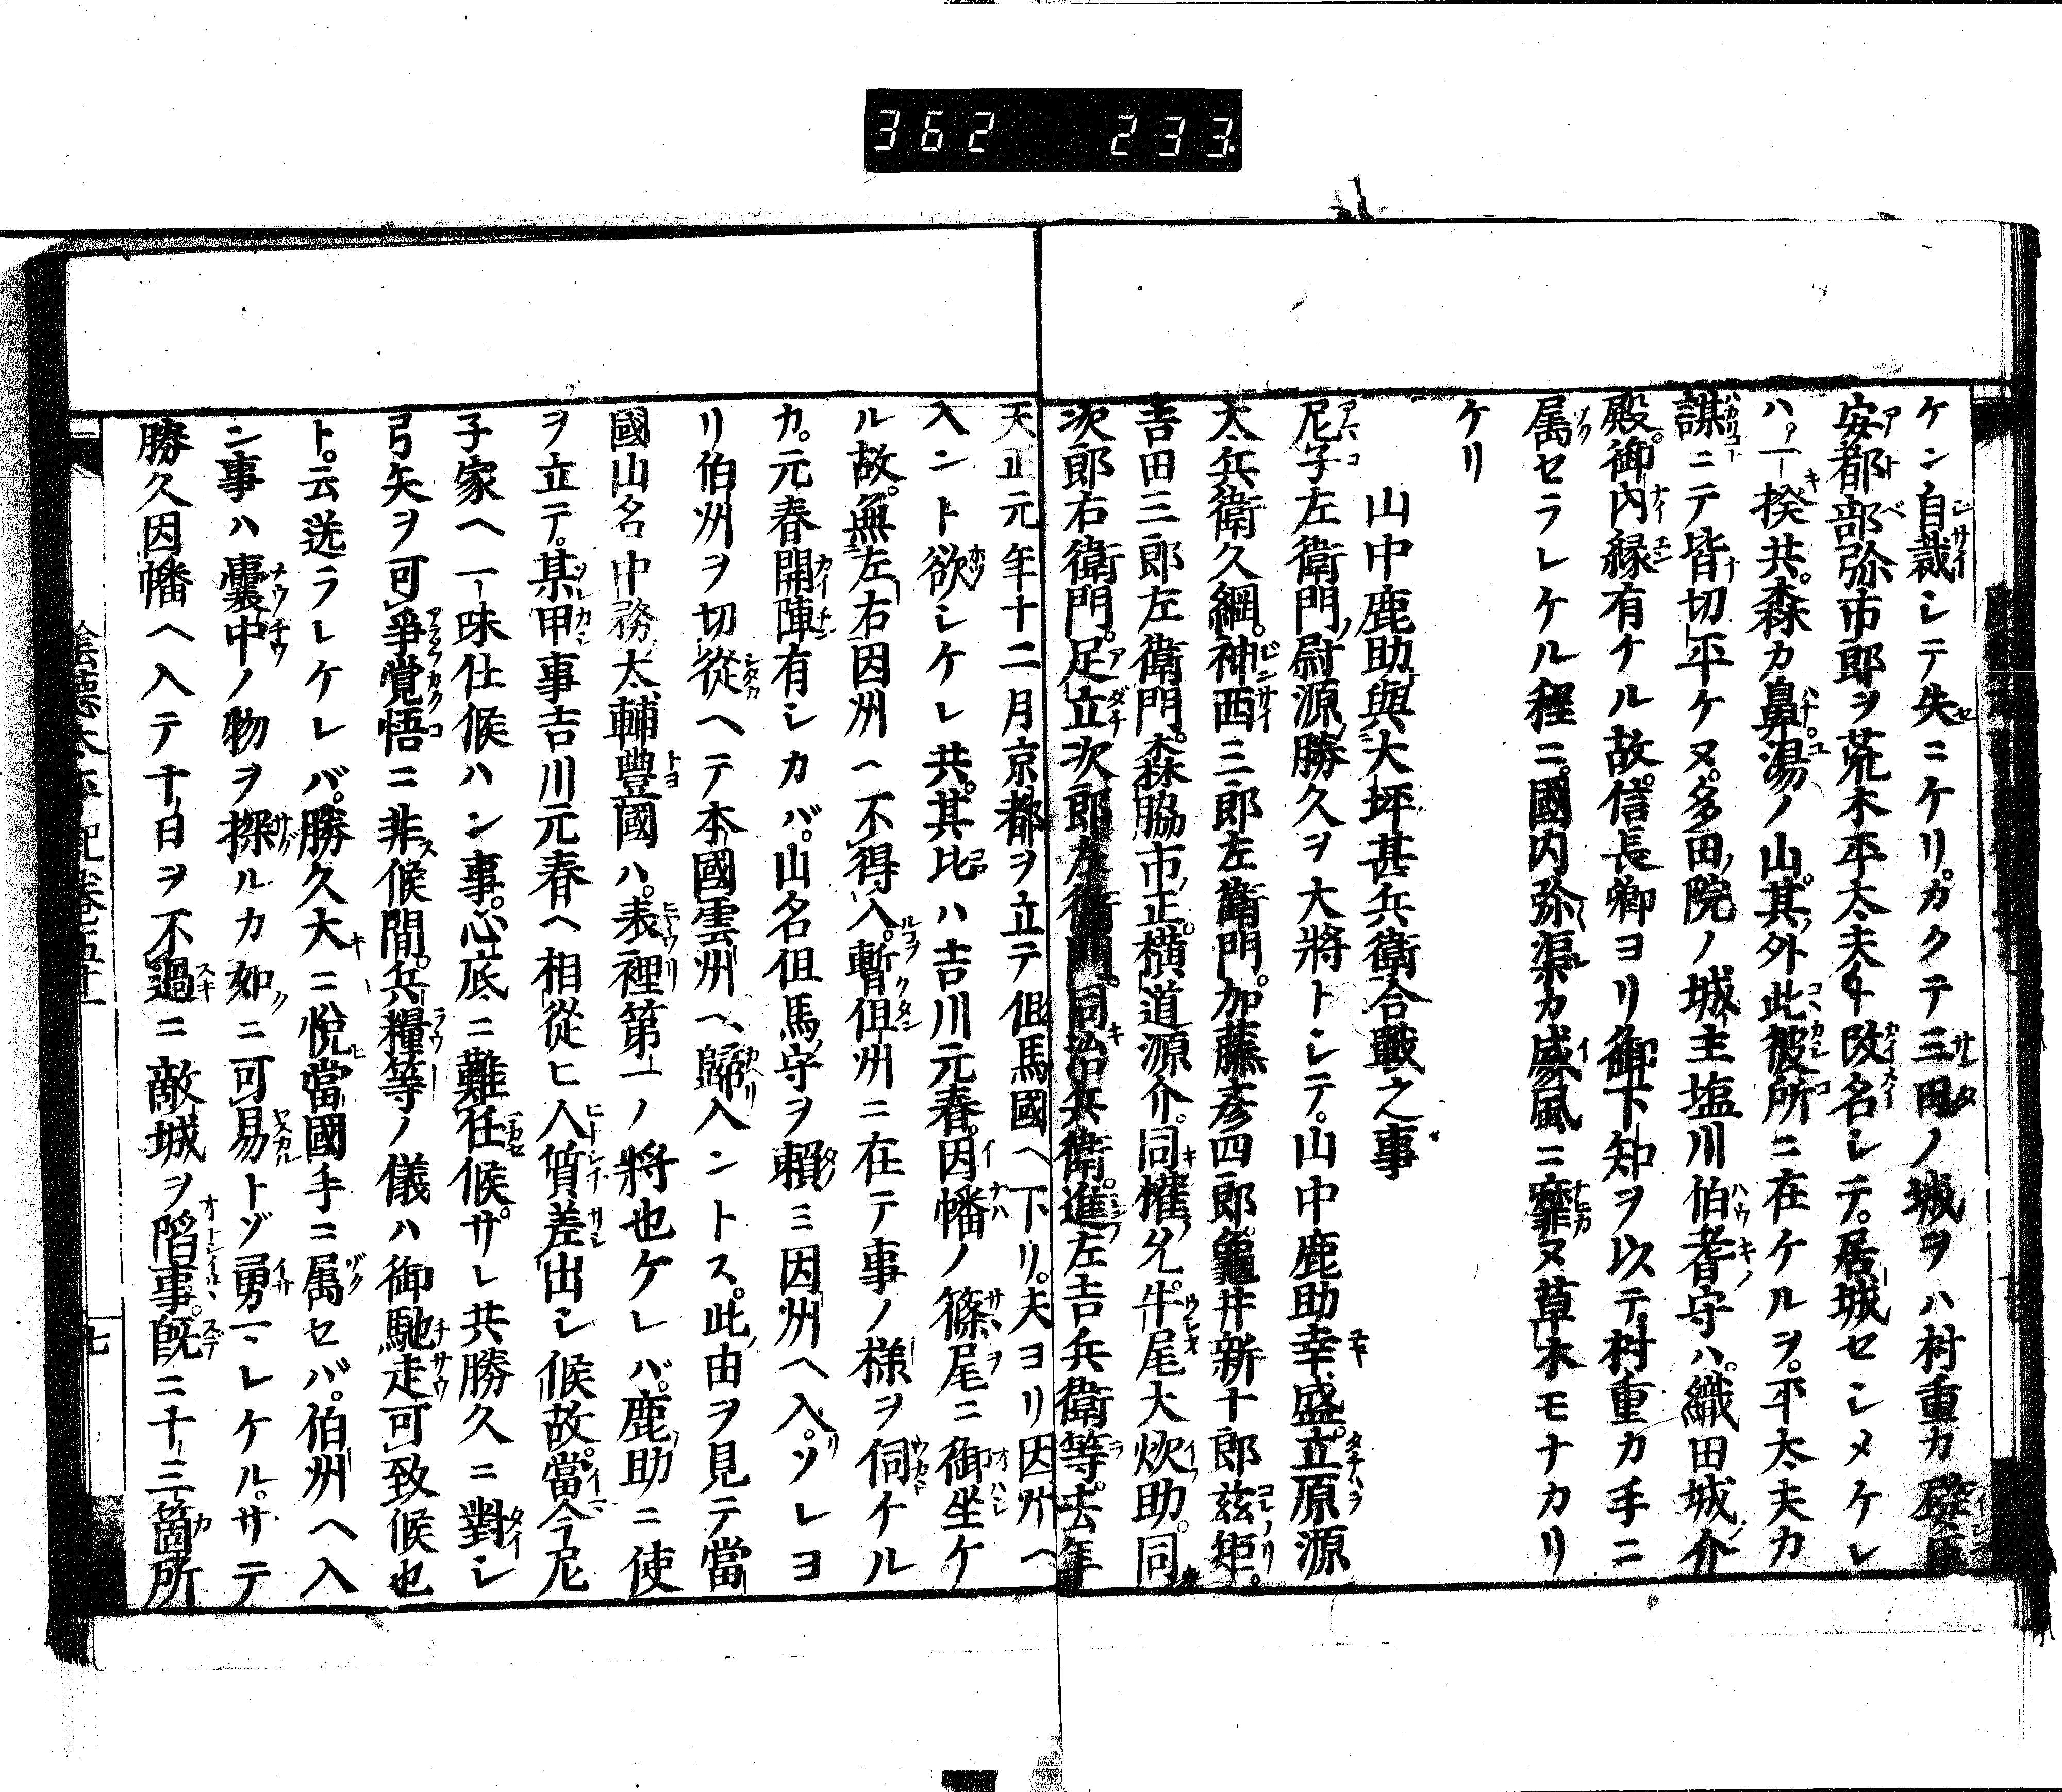 362 233
ケン自裁シテ失ニケリ。カクテ三田ノ城ヲハ村重カ嬖臣
安都部弥市郎ヲ荒木平太夫ト改名シテ。居城セシメケレ
ハ。一揆共。森カ鼻湯ノ山。其外此彼所ニ在ケルヲ。平太夫カ
謀ニテ皆切平ケヌ。多田院ノ城主塩川伯耆守ハ。織田城介
殿。御内縁有ケル故。信長卿ヨリ御下知ヲ以テ。村重カ手ニ
属セラレケル程ニ。國内弥渠カ威風ニ靡ヌ草木モナカリ
ケリ
山中鹿助與大坪甚兵衛合戰之事
尼子左衛門尉源勝久ヲ大將トシテ。山中鹿助幸盛。立原源
太兵衛久綱。神西三郎左衛門。加藤彦四郎。龜井新十郎茲矩。
吉田三郎左衛門。森脇市正。横道源介。同權允。牛尾大炊助。同
次郎右衛門。足立次郎左衛門。同治兵衛。進左吉兵衛等。去年
天正元年十二月京都ヲ立テ但馬國ヘ下リ。夫ヨリ因州ヘ
入ント欲シケレ共。其比ハ吉川元春。因幡ノ篠尾ニ御坐ケ
ル故。無左右因州ヘ不得入。暫但州ニ在テ事ノ様ヲ伺ケル
カ。元春開陣有シカバ。山名但馬守ヲ頼ミ因州ヘ入。ソレヨ
リ伯州ヲ切從ヘテ本國雲州ヘ歸入ントス。此由ヲ見テ當
國山名中務太輔豊國ハ。表裡第一ノ將也ケレバ。鹿助ニ使
ヲ立テ。某甲事吉川元春ヘ相從ヒ人質差出シ候故。當今尼
子家ヘ一味仕候ハン事。心底ニ難任候。サレ共勝久ニ對シ
弓矢ヲ可爭覚悟ニ非候間。兵糧等ノ儀ハ御馳走可致候也
ト。云送ラレケレバ。勝久大ニ悅當國手ニ属セバ。伯州ヘ入
ン事ハ嚢中ノ物ヲ探ルカ如ニ可易トゾ勇マレケル。サテ
勝久因幡ヘ入テ十日ヲ不過ニ敵城ヲ陷事。既ニ十三箇所
陰德太平記卷五十一
七